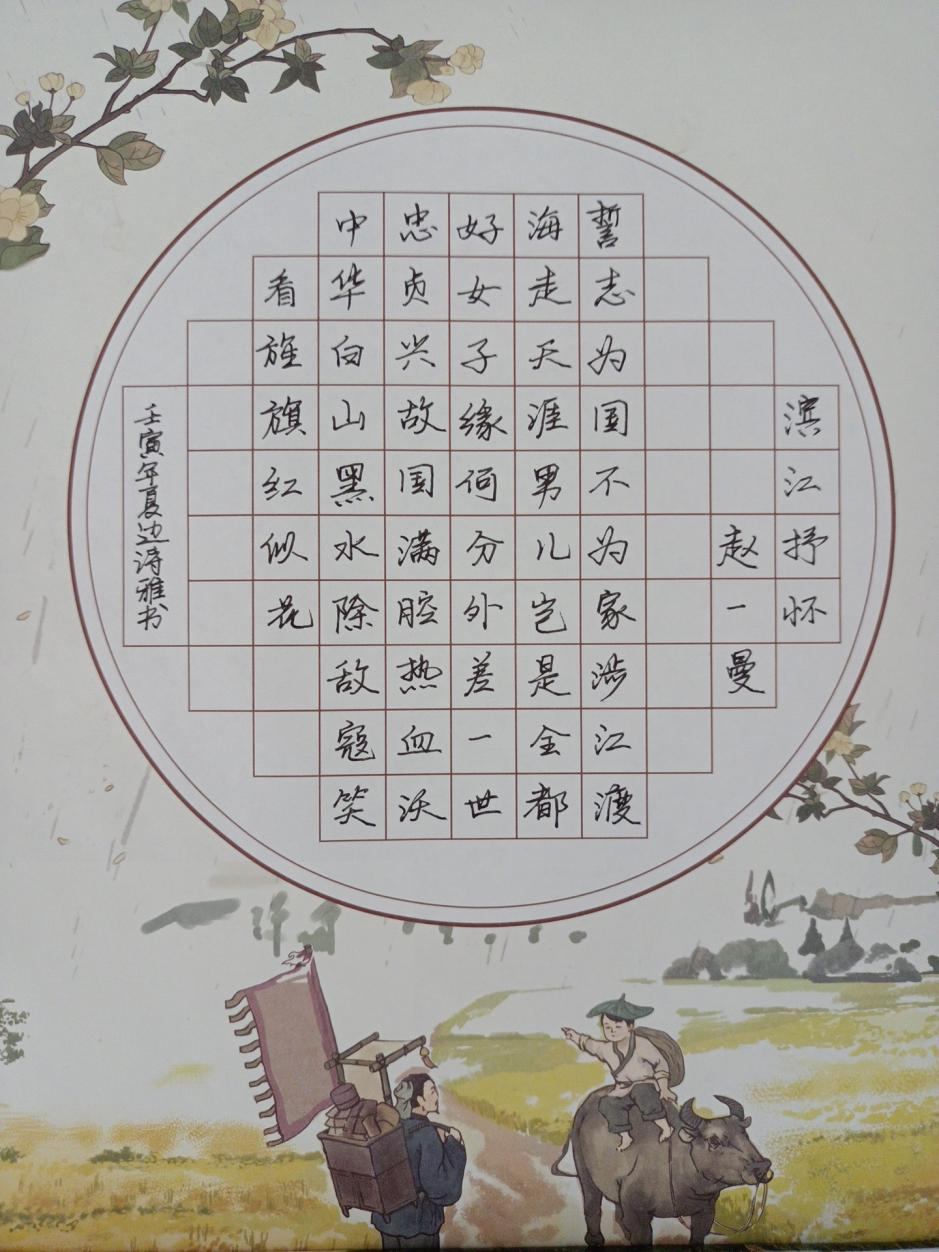 滨江抒怀
赵一曼
誓志为国不为家涉江渡
海走天涯男儿岂是全都
好女子缘何分外差一世
忠贞兴故国满腔热血沃
中华白山黑水除敌寇笑
看旌旗红似花
壬寅年夏边诗雅书